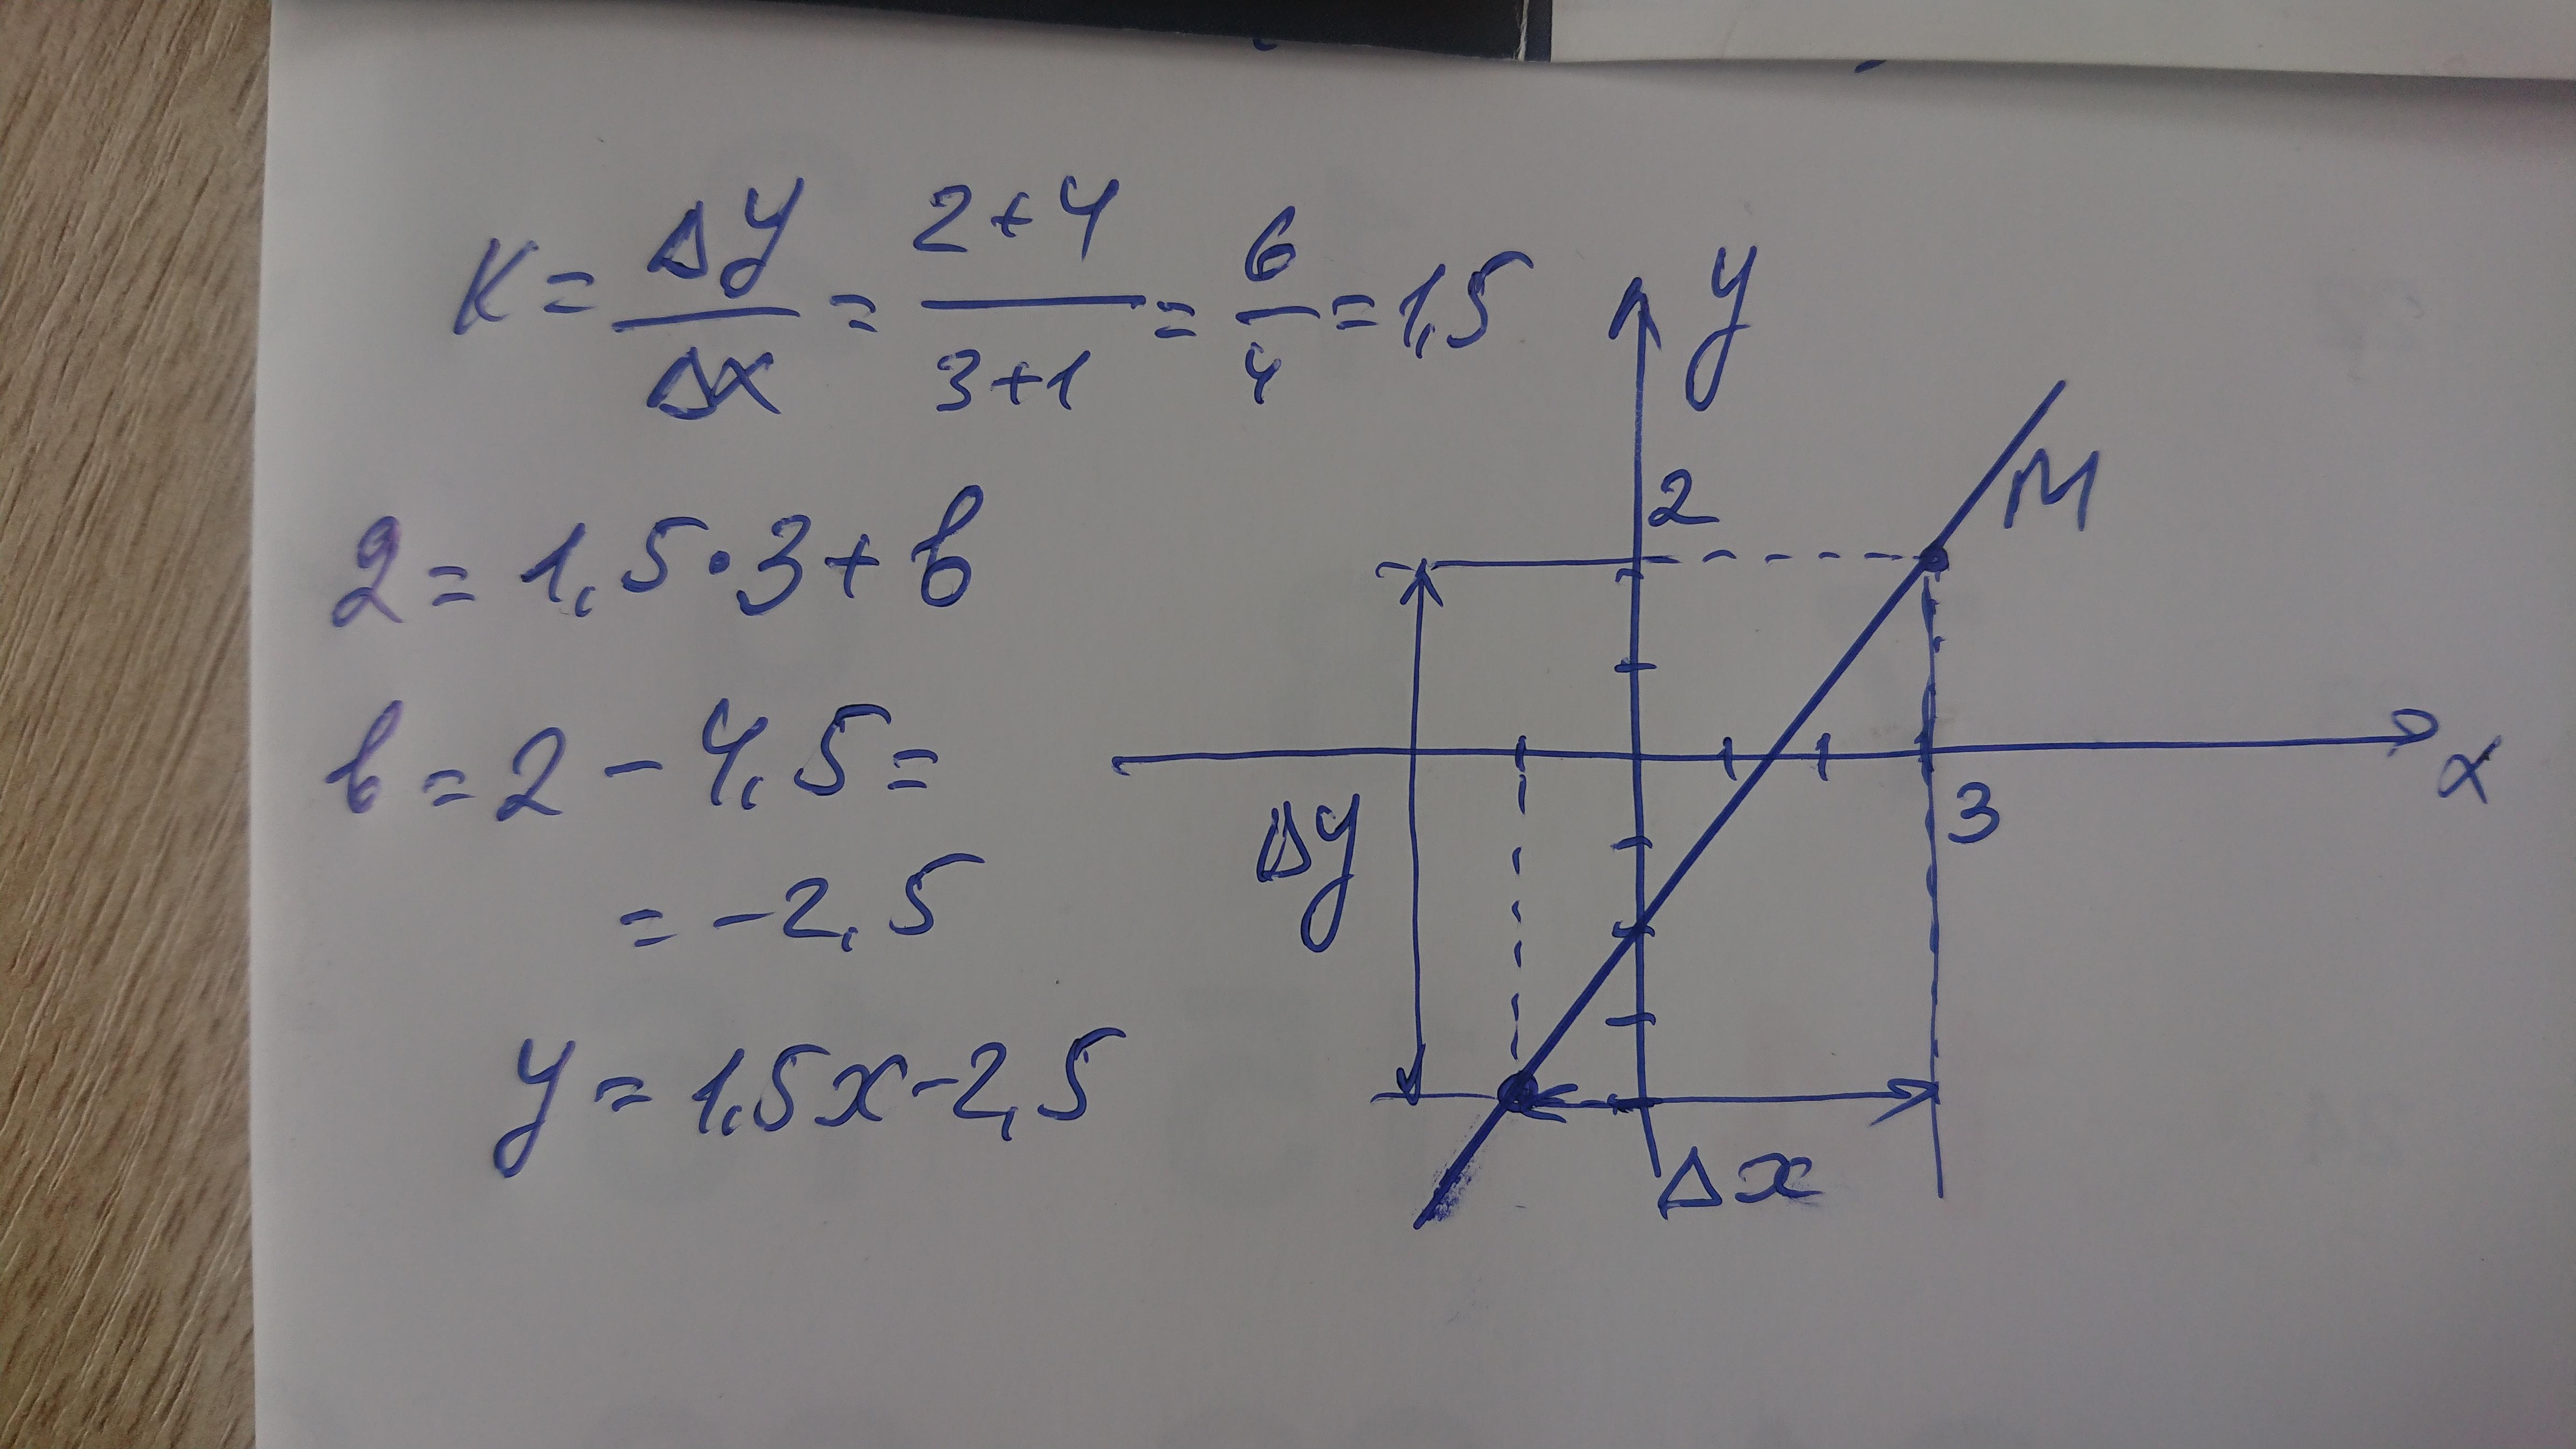 K = Δy/Δx = (2+4)/(3+1) = 6/4 = 1,5
2 = 1,5·3+b
b = 2 - 4,5 =
= -2,5
y = 1,5x-2,5
y
M
2
x
3
Δy
Δx